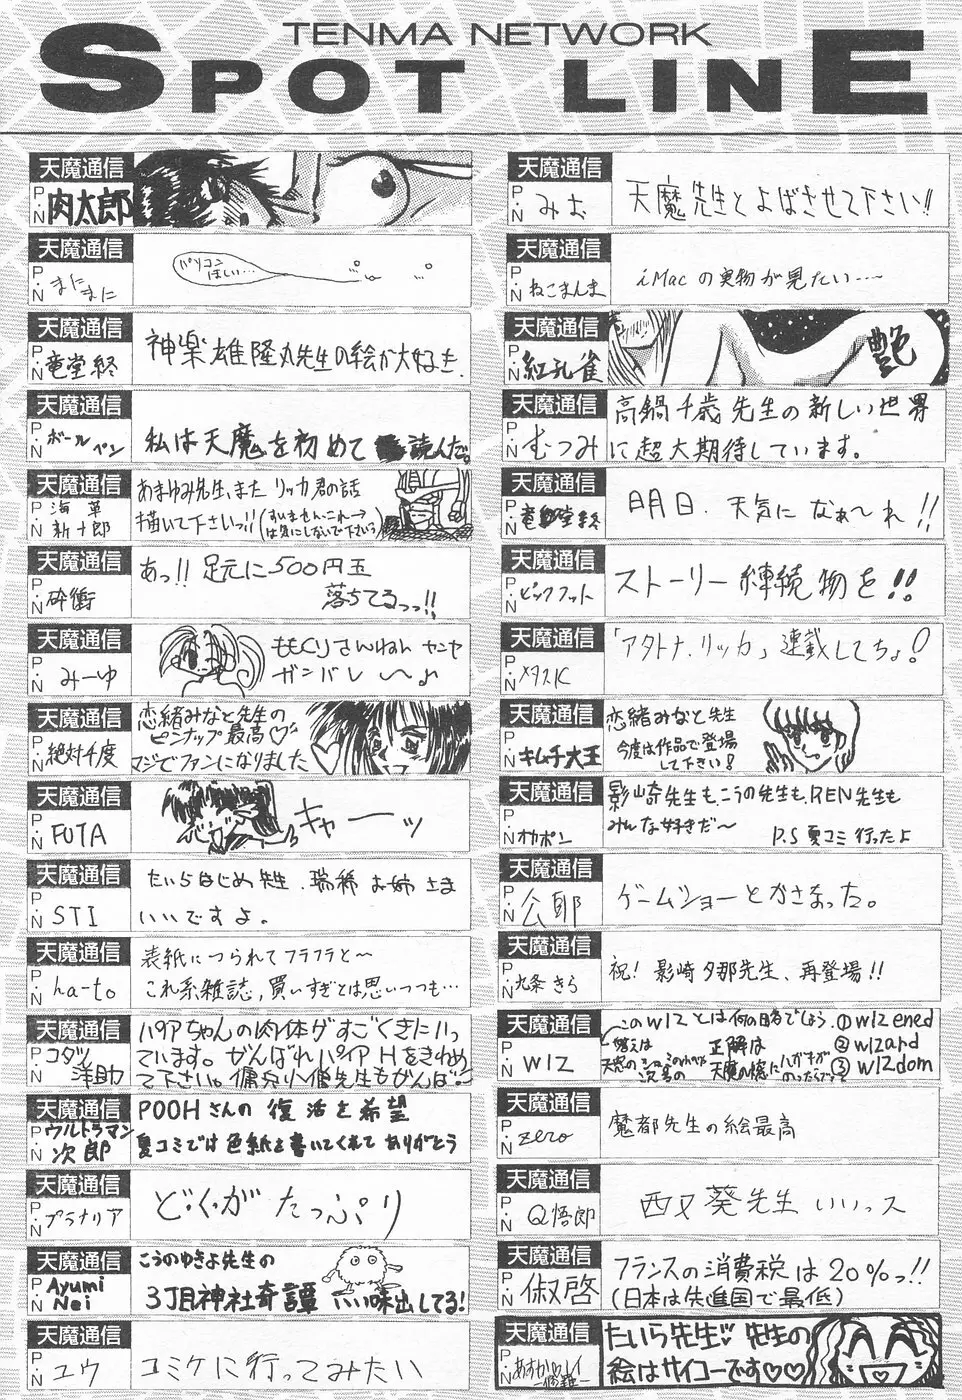 TENMA NETWORK
SPOT LINE
天魔通信
P・N 肉太郎
天魔通信
P・N まにまに
パソコンほしい…
天魔通信
P・N 竜堂終
神楽雄隆丸先生の絵が大好き.
天魔通信
P・N ボールペン
私は天魔を初めて読んだ。
天魔通信
P・N 海草新十郎
あまゆみ先生、また リッカ君の話
描いて下さいっ!!(すいません、これ→
は気にしないで下さい)
天魔通信
P・N 砕衝
あっ!! 足元に500円玉
落ちてるっっ!!
天魔通信
P・N みーゆ
ガンバレ 〜♪
天魔通信
P・N 絶対千度
恋緒みなと先生の
ピンナップ最高♡
マジでファンになりました
天魔通信
P・N FUTA
キャーーッ
天魔通信
P・N STI
たいらはじめ先生.瑞稀お姉さま
いいですよ。
天魔通信
P・N ha-to
表紙につられてフラフラと〜
これ系雑誌,買いすぎとは思いつつも…
天魔通信
P・N コダツ洋助
パイアちゃんの肉体がすごくきにいっ
ています。がんばれパイア Hをきわめ
て下さい。傭兵小僧先生もがんば
天魔通信
P・N ウルトラマン次郎
POOHさんの 復活を希望
夏コミでは色紙を書いてくれて ありがとう
天魔通信
P・N プラナリア
どくがたっぷり
天魔通信
P・N Ayumi Nei
こうのゆきよ先生の
3丁目神社奇譚 いい味出してる!
天魔通信
P・N ユウ
コミケに行ってみたい
天魔通信
P・N みお
天魔先生とよばさせて下さい!!
天魔通信
P・N ねこまんま
iMacの実物が見たい……
天魔通信
P・N 紅孔雀
艶
天魔通信
P・N むつみ
高鍋千歳先生の新しい世界
に超大期待しています。
天魔通信
P・N 竜堂終
明日.天気になぁ〜れ!!
天魔通信
P・N ビックフット
ストーリー継続物を!!
天魔通信
P・N メタスK
「アタトナ.リッカ」連載してちょ!
天魔通信
P・N キムチ大王
恋緒みなと先生
今度は作品で登場
して下さい!
天魔通信
P・N オカポン
影崎先生も、こうの先生も、REN先生も
みんな好きだ〜 P.S 夏コミ行ったよ
天魔通信
P・N 公耶
ゲームショーとかさなった。
天魔通信
P・N 九条きら
祝!影崎夕那先生、再登場!!
天魔通信
P・N WIZ
このWIZとは何の略でしょう.①wizened
正解は ②wizard
③wizdom
天魔通信
P・N zero
魔都先生の絵最高
天魔通信
P・N Q悟郎
西又葵先生 いいっス
天魔通信
P・N 俶啓
フランスの消費税は20%っ!!
(日本は先進国で最低)
天魔通信
たいら先生♡ 先生の
絵はサイコーです♡♡